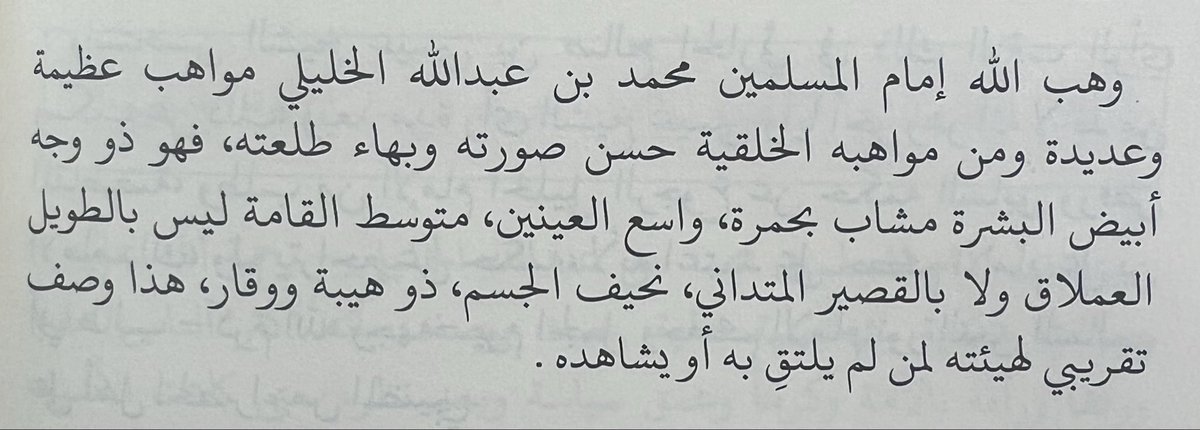 وهب الله إمام المسلمين محمد بن عبدالله الخليلي مواهب عظيمة
وعديدة ومن مواهبه الخلقية حسن صورته وبهاء طلعته، فهو ذو وجه
أبيض البشرة مشاب بحمرة، واسع العينين، متوسط القامة ليس بالطويل
العملاق ولا بالقصير المتداني، نحيف الجسم، ذو هيبة ووقار، هذا وصف
تقريبي لهيئته لمن لم يلتقِ به أو يشاهده .